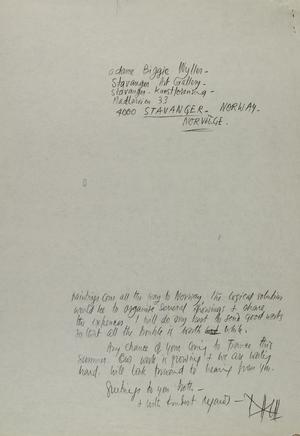 adame Biggie Wyller -
Stavanger Art Gallery -
Stavanger - Kunstforening -
Madlaveien 33
4000 STAVANGER - NORWAY -
NORVEGE.
paintings come all the way to Norway, the logical solution
would be to organise several showings + share
the expenses. I will do my best to send good works
so that all the trouble is worth while.
Any chance of you coming to France this
summer. Our work is growing + we are working
hard. Will look forward to hearing from you.
Greetings to you both -
+ with kindest regards -